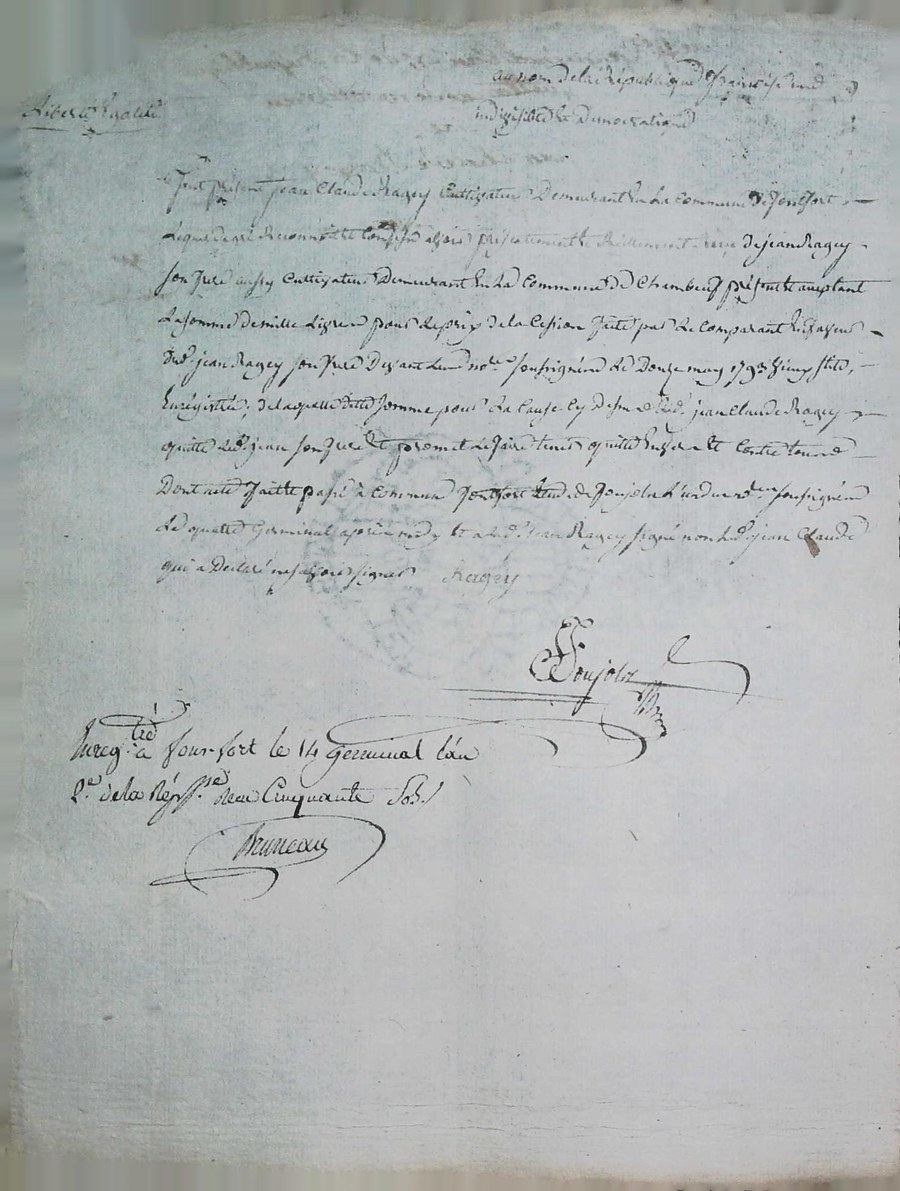 Liberté Egalité
au nom de la République françoise une
indivisible et démocratique
fut présent jean Claude Ragey Cultivateur Demeurant en La Commune de fontfort
Lequel de gré Reconnoit et Confesse avoir présentement et Réellement Reçu de jean Ragey
son frere aussy Cultivateur Demeurant en La Commune de Chambeuf présent et acceptant
La somme de mille Livres pour Le prix de la Cession faite par Le Comparant en faveur
dud. jean Ragey son frere Devant Le no.re soussigné Le Douze may 1793 vieux stile,
Enregistrée; de laquelle ditte somme pour La Cause Cy Dessus Led. jean Claude Ragey
quitte Led. jean son frere et promet Le faire tenir quitte Envers et Contre tous
Dont acte fait et passé à Commune fontfort Etude de Ponjols L'un des no.res soussigné
Le quatre Germinal après midy et a Led. jean Ragey signé non Led. jean Claude
qui a Déclaré ne savoir signer Ragey
Ponjols
Enreg.tré à fonsfort le 14 germinal l'an
2.e de la Rép. Reçu Cinquante Sols
Bruneau